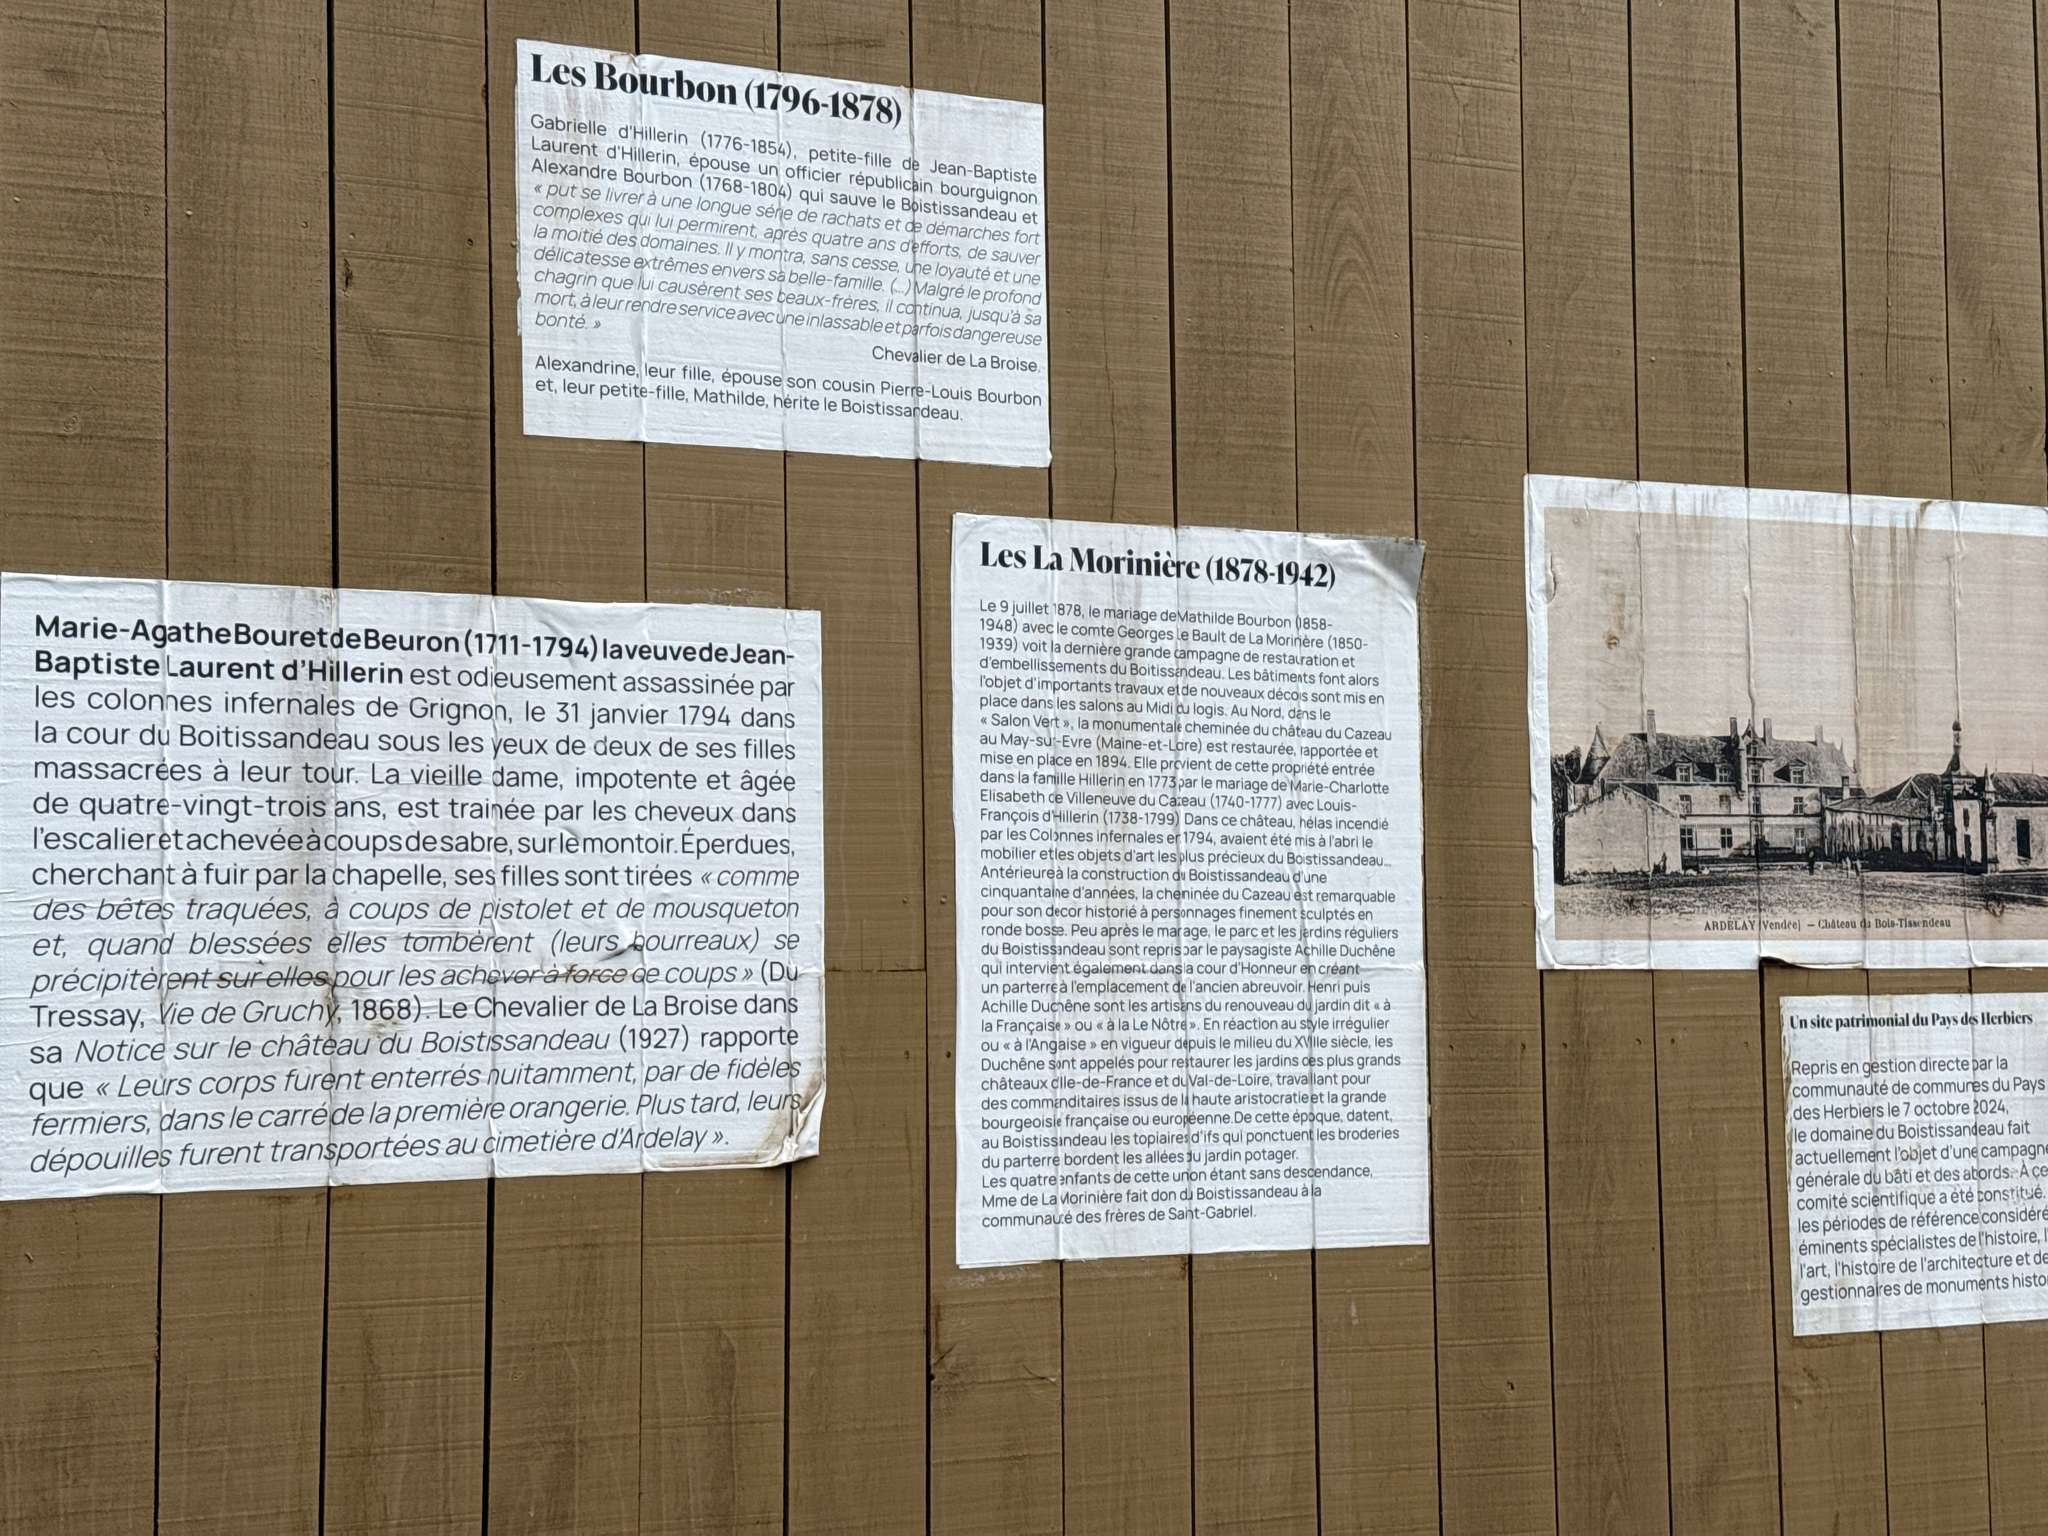 Les Bourbon (1796-1878)
Gabrielle d'Hillerin (1776-1854), petite-fille de Jean-Baptiste
Laurent d'Hillerin, épouse un officier républicain bourguignon
Alexandre Bourbon (1768-1804) qui sauve le Boistissandeau et
« put se livrer à une longue série de rachats et de démarches fort
complexes qui lui permirent, après quatre ans d'efforts, de sauver
la moitié des domaines. Il y montra, sans cesse, une loyauté et une
délicatesse extrêmes envers sa belle-famille. (...) Malgré le profond
chagrin que lui causèrent ses beaux-frères, il continua, jusqu'à sa
mort, à leur rendre service avec une inlassable et parfois dangereuse
bonté. »
Chevalier de La Broise.
Alexandrine, leur fille, épouse son cousin Pierre-Louis Bourbon
et, leur petite-fille, Mathilde, hérite le Boistissandeau.
Marie-Agathe Bouret de Beuron (1711-1794) la veuve de Jean-
Baptiste Laurent d'Hillerin est odieusement assassinée par
les colonnes infernales de Grignon, le 31 janvier 1794 dans
la cour du Boitissandeau sous les yeux de deux de ses filles
massacrées à leur tour. La vieille dame, impotente et âgée
de quatre-vingt-trois ans, est trainée par les cheveux dans
l'escalier et achevée à coups de sabre, sur le montoir. Éperdues,
cherchant à fuir par la chapelle, ses filles sont tirées « comme
des bêtes traquées, à coups de pistolet et de mousqueton
et, quand blessées elles tombèrent (leurs bourreaux) se
précipitèrent sur elles pour les achever à force de coups » (Du
Tressay, Vie de Gruchy, 1868). Le Chevalier de La Broise dans
sa Notice sur le château du Boistissandeau (1927) rapporte
que « Leurs corps furent enterrés nuitamment, par de fidèles
fermiers, dans le carré de la première orangerie. Plus tard, leurs
dépouilles furent transportées au cimetière d'Ardelay ».
Les La Morinière (1878-1942)
Le 9 juillet 1878, le mariage de Mathilde Bourbon (1858-
1948) avec le comte Georges Le Bault de La Morinère (1850-
1939) voit la dernière grande campagne de restauration et
d'embellissements du Boitissandeau. Les bâtiments font alors
l'objet d'importants travaux et de nouveaux décors sont mis en
place dans les salons au Midi du logis. Au Nord, dans le
« Salon Vert », la monumentale cheminée du château du Cazeau
au May-sur-Evre (Maine-et-Loire) est restaurée, rapportée et
mise en place en 1894. Elle provient de cette propriété entrée
dans la famille Hillerin en 1773 par le mariage de Marie-Charlotte
Elisabeth de Villeneuve du Cazeau (1740-1777) avec Louis-
François d'Hillerin (1738-1799) Dans ce château, hélas incendié
par les Colonnes infernales en 1794, avaient été mis à l'abri le
mobilier et les objets d'art les plus précieux du Boistissandeau...
Antérieure à la construction du Boistissandeau d'une
cinquantaine d'années, la cheminée du Cazeau est remarquable
pour son decor historié à personnages finement sculptés en
ronde bosse. Peu après le mariage, le parc et les jardins réguliers
du Boistissandeau sont repris par le paysagiste Achille Duchêne
qui intervient également dans la cour d'Honneur en créant
un parterre à l'emplacement de l'ancien abreuvoir. Henri puis
Achille Duchêne sont les artisans du renouveau du jardin dit « à
la Française » ou « à la Le Nôtre ». En réaction au style irrégulier
ou « à l'Anglaise » en vigueur depuis le milieu du XVIIIe siècle, les
Duchêne sont appelés pour restaurer les jardins des plus grands
châteaux d'Ile-de-France et du Val-de-Loire, travaillant pour
des commanditaires issus de la haute aristocratie et la grande
bourgeoisie française ou européenne. De cette époque, datent,
au Boistissandeau les topiaires d'ifs qui ponctuent les broderies
du parterre bordent les allées du jardin potager.
Les quatre enfants de cette union étant sans descendance,
Mme de La Morinière fait don du Boistissandeau à la
communauté des frères de Saint-Gabriel.
ARDELAY (Vendée) – Château du Bois-Tissendeau
Un site patrimonial du Pays des Herbiers
Repris en gestion directe par la
communauté de communes du Pays
des Herbiers le 7 octobre 2024,
le domaine du Boistissandeau fait
actuellement l'objet d'une campagne
générale du bâti et des abords. À ce
comité scientifique a été constitué.
les périodes de référence considéré
éminents spécialistes de l'histoire, l'
l'art, l'histoire de l'architecture et de
gestionnaires de monuments histo